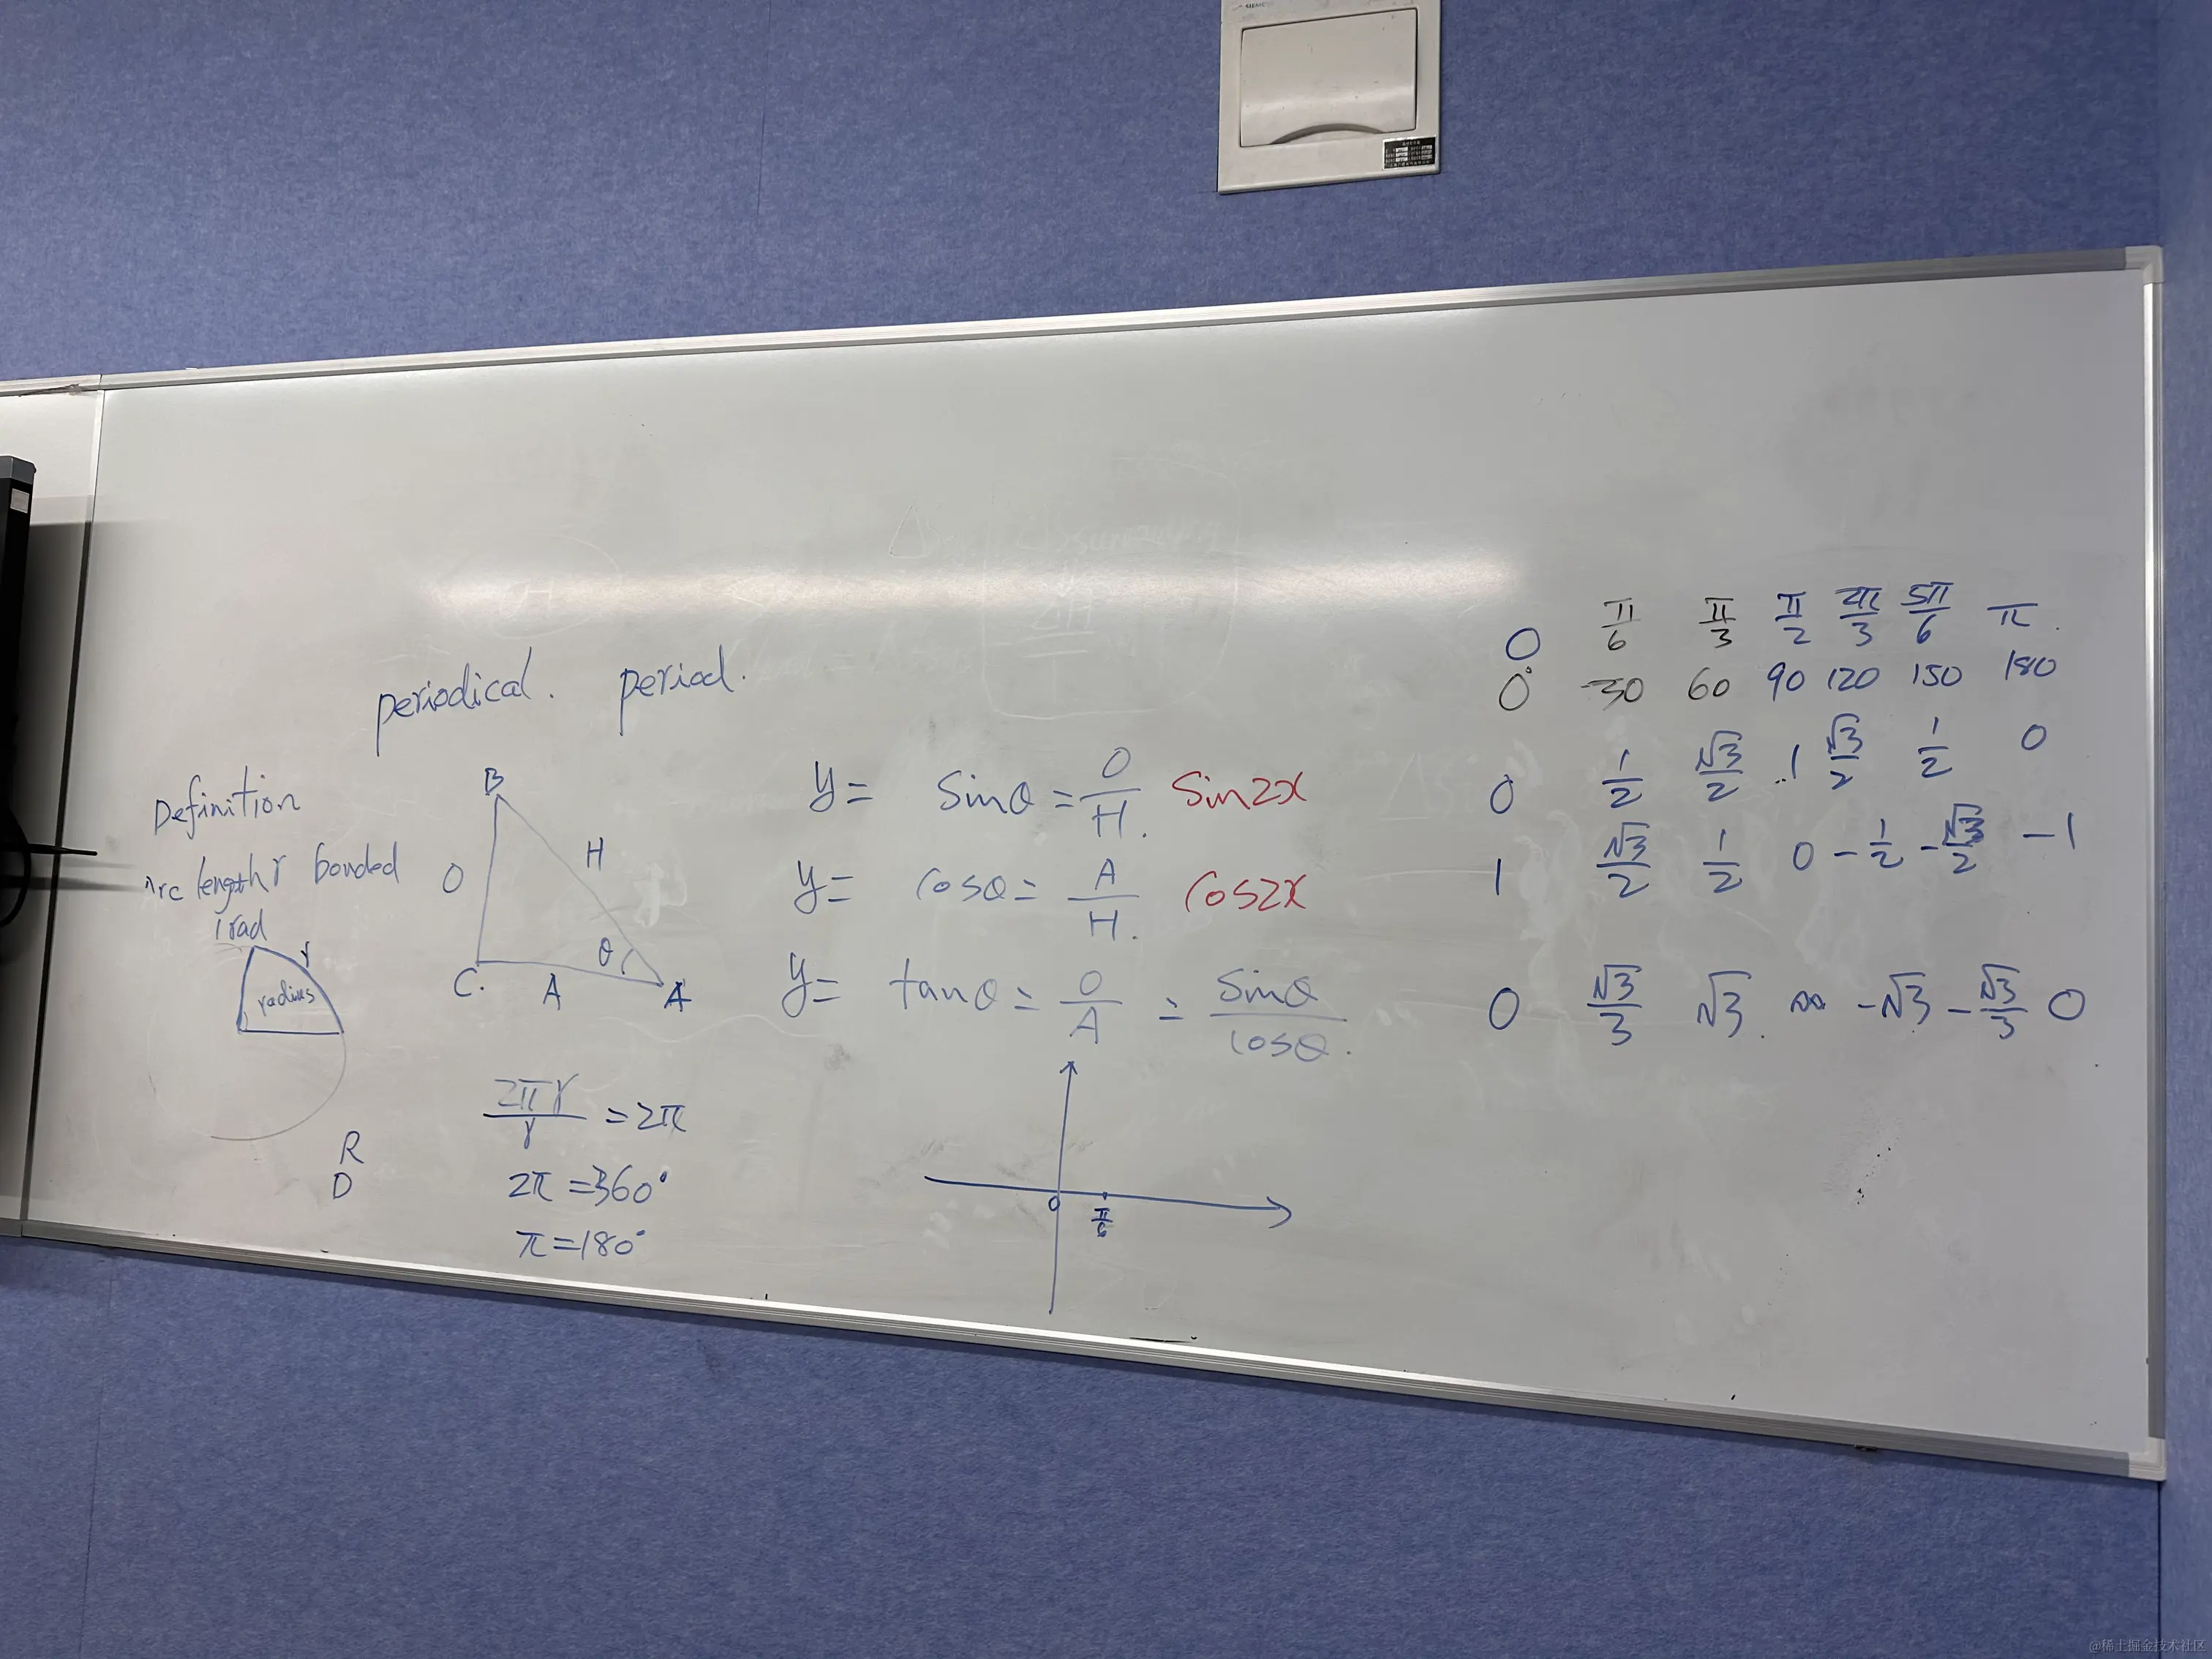 periodical. period.
Definition
Arc length r bonded
1 rad
r
radius
B
O
H
C.
A
θ
A
R
D
2πr/r = 2π
2π = 360°
π = 180°
y = sinθ = O/H. sin2x
y = cosθ = A/H. cos2x
y = tanθ = O/A = sinθ/cosθ.
0
π/6
0 π/6 π/3 π/2 2π/3 5π/6 π.
0° 30 60 90 120 150 180
0 1/2 √3/2 1 √3/2 1/2 0
1 √3/2 1/2 0 -1/2 -√3/2 -1
0 √3/3 √3. ∞ -√3 -√3/3 0
@稀土掘金技术社区